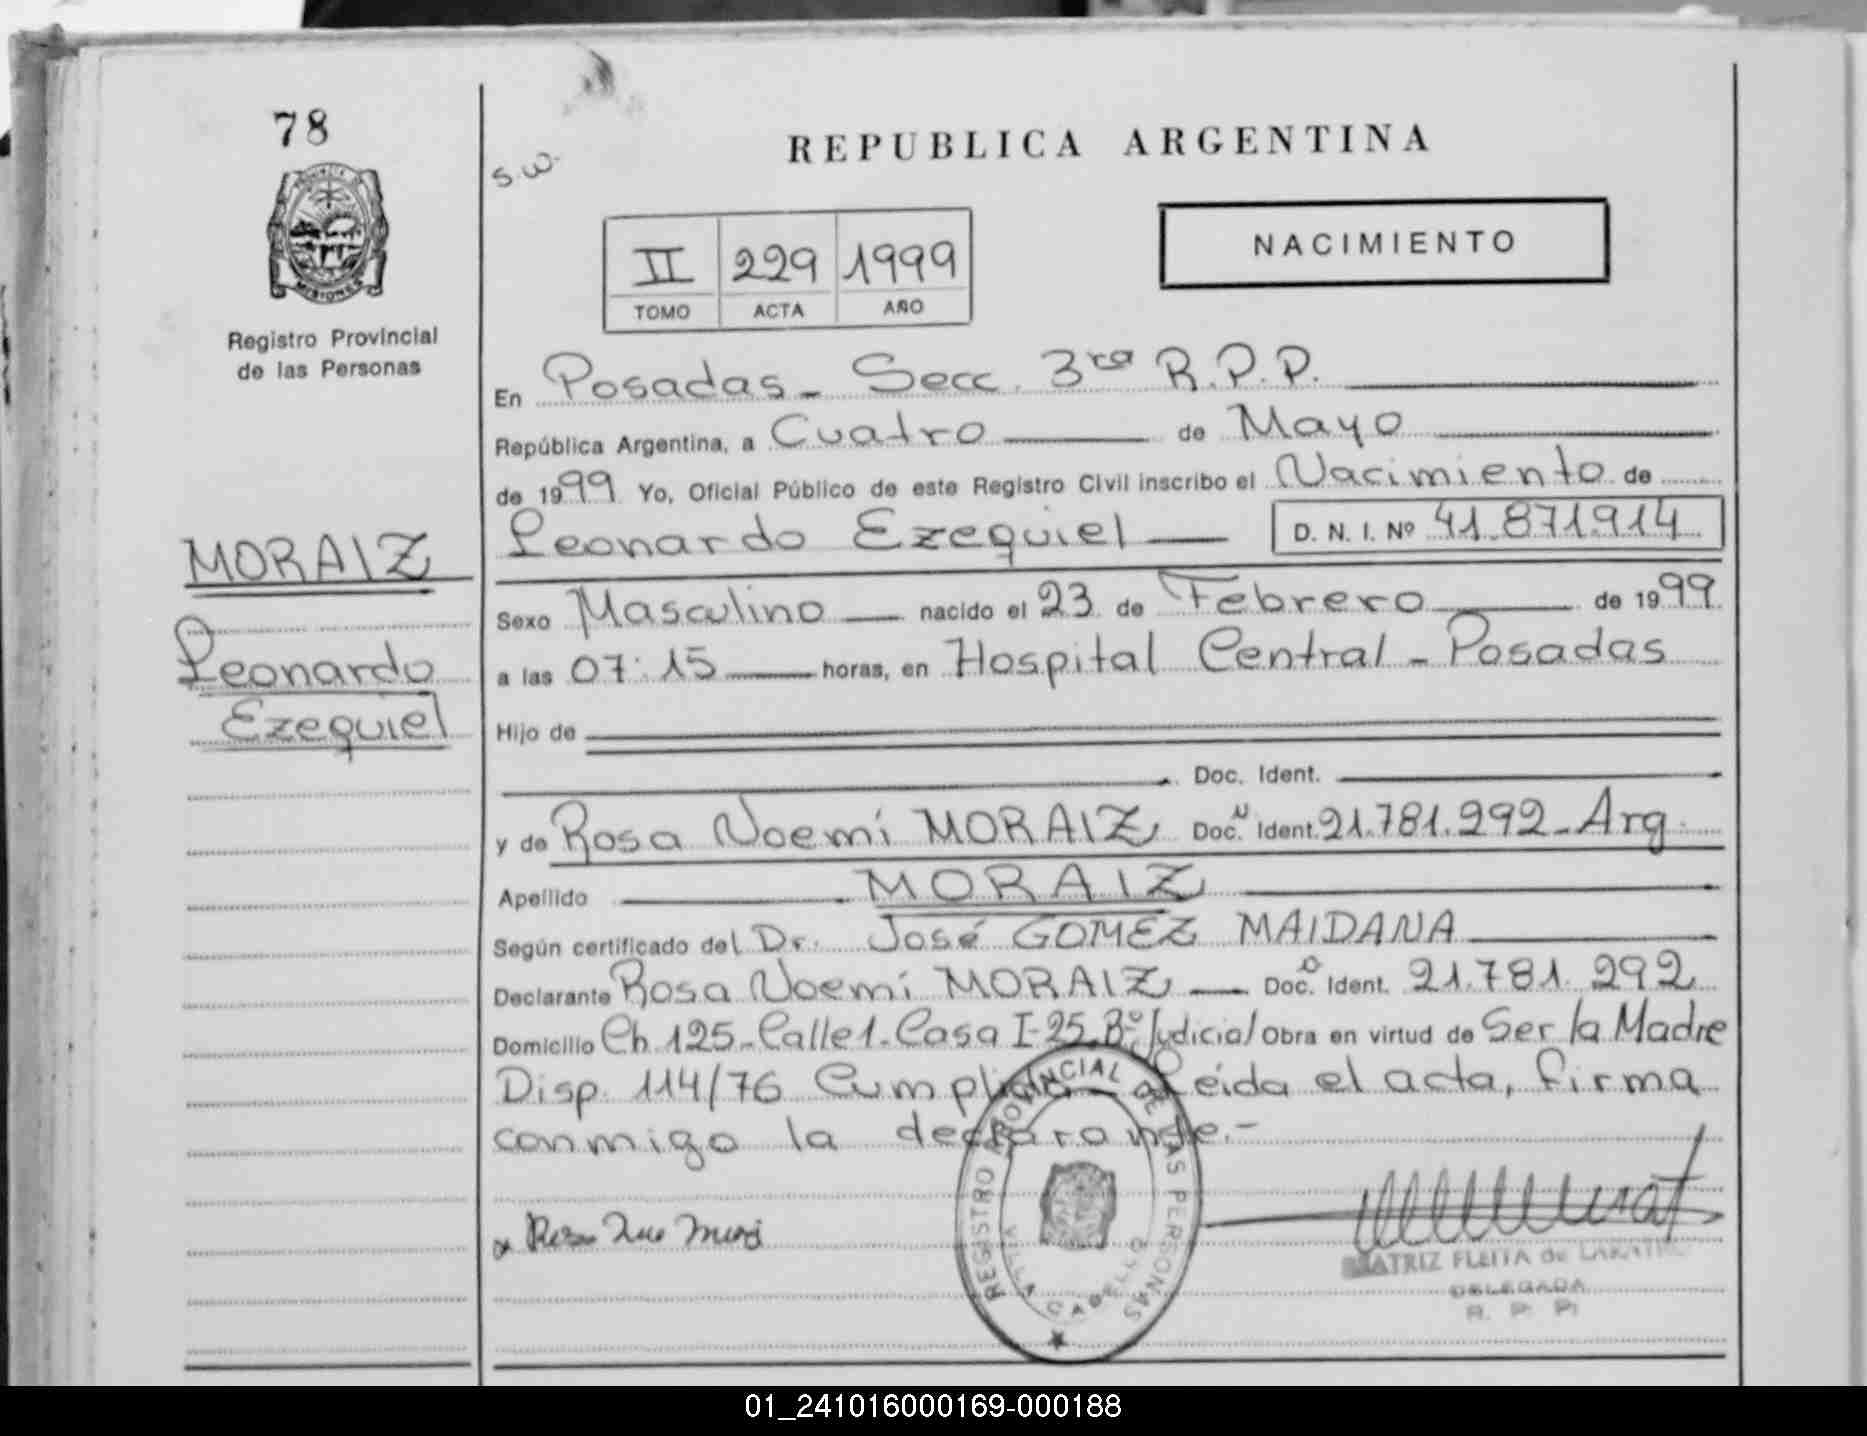 78
REPUBLICA ARGENTINA
S.W.
NACIMIENTO
II 229 1999
TOMO ACTA AÑO
PROVINCIA DE
MISIONES
Registro Provincial
de las Personas
En Posadas - Secc. 3ra R.P.P.
República Argentina, a Cuatro de Mayo
de 1999 Yo, Oficial Público de este Registro Civil inscribo el Nacimiento de
Leonardo Ezequiel D. N. I. Nº 41.871.914
MORAIZ
Leonardo
Ezequiel
Sexo Masculino nacido el 23 de Febrero de 1999
a las 07:15 horas, en Hospital Central - Posadas
Hijo de
Doc. Ident.
y de Rosa Noemí MORAIZ Doc. Ident. 21.781.292 - Arg.
Apellido MORAIZ
Según certificado del Dr. José GOMEZ MAIDANA
Declarante Rosa Noemí MORAIZ Doc. Ident. 21.781.292
Domicilio Ch 125 - Calle 1 - Casa I-25 Bº Judicial Obra en virtud de Ser la Madre
Disp. 114/76 Cumplida - Leída el acta, firma
conmigo la declarante.-
REGISTRO PROVINCIAL DE LAS PERSONAS
VILLA CABELLO
FLEITA de
DELEGADA
R. P. P.
01_241016000169-000188